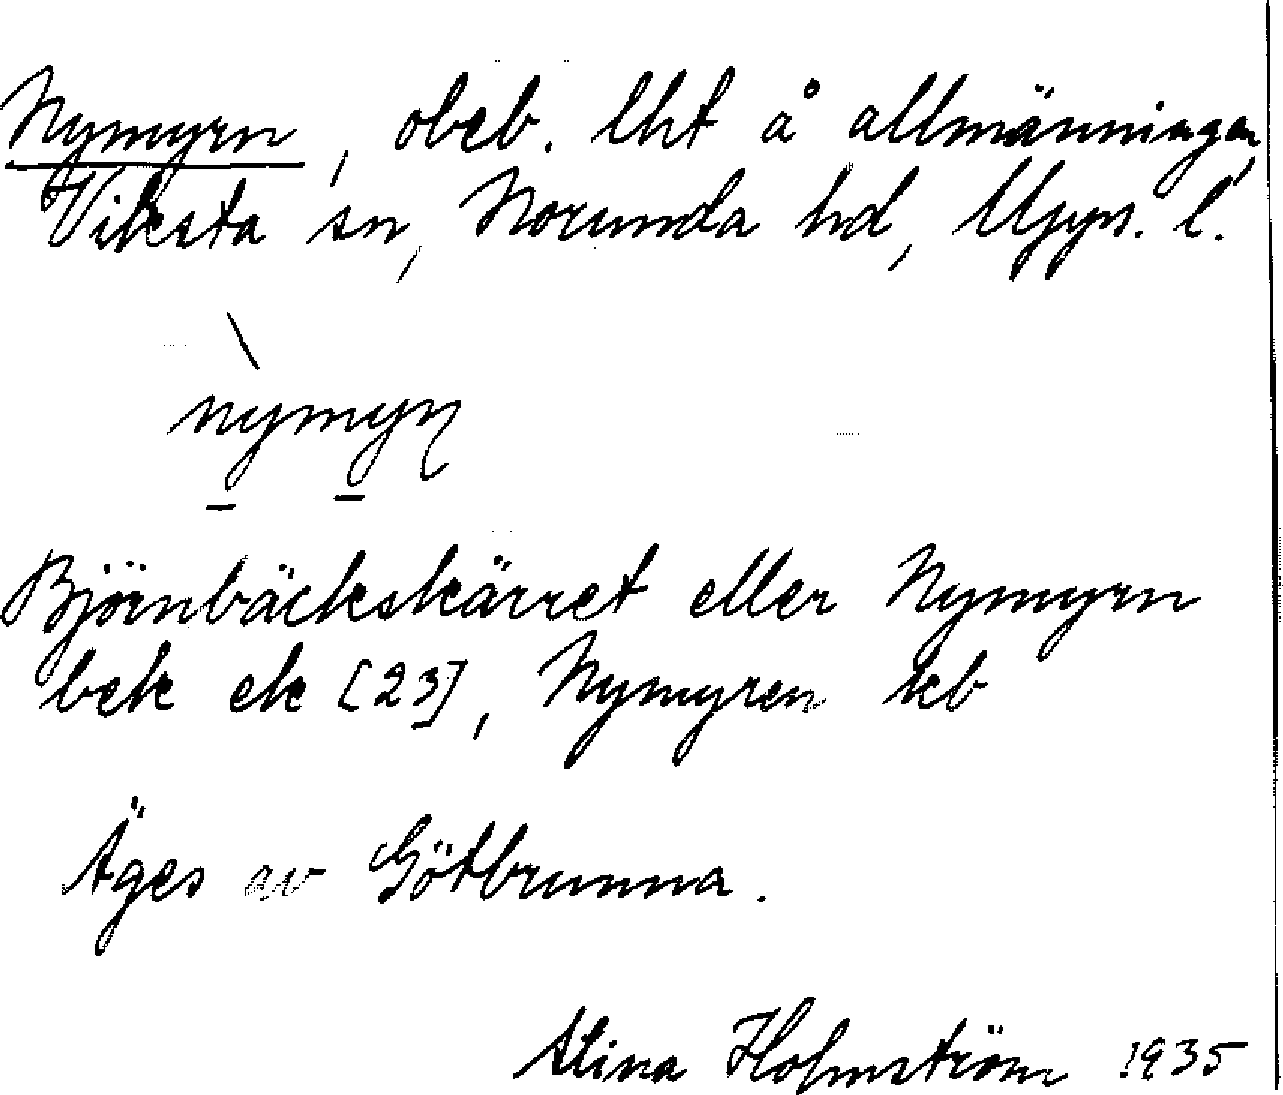 Nymyrn, obeb. lht å allmänningen,
Viksta sn, Norunda hd, Upps. l.
nymyɳ
Björnbäckskärret eller Nymyrn
bek ek [23], Nymyren kb
Äges av Götbrunna.
Alina Holmström 1935